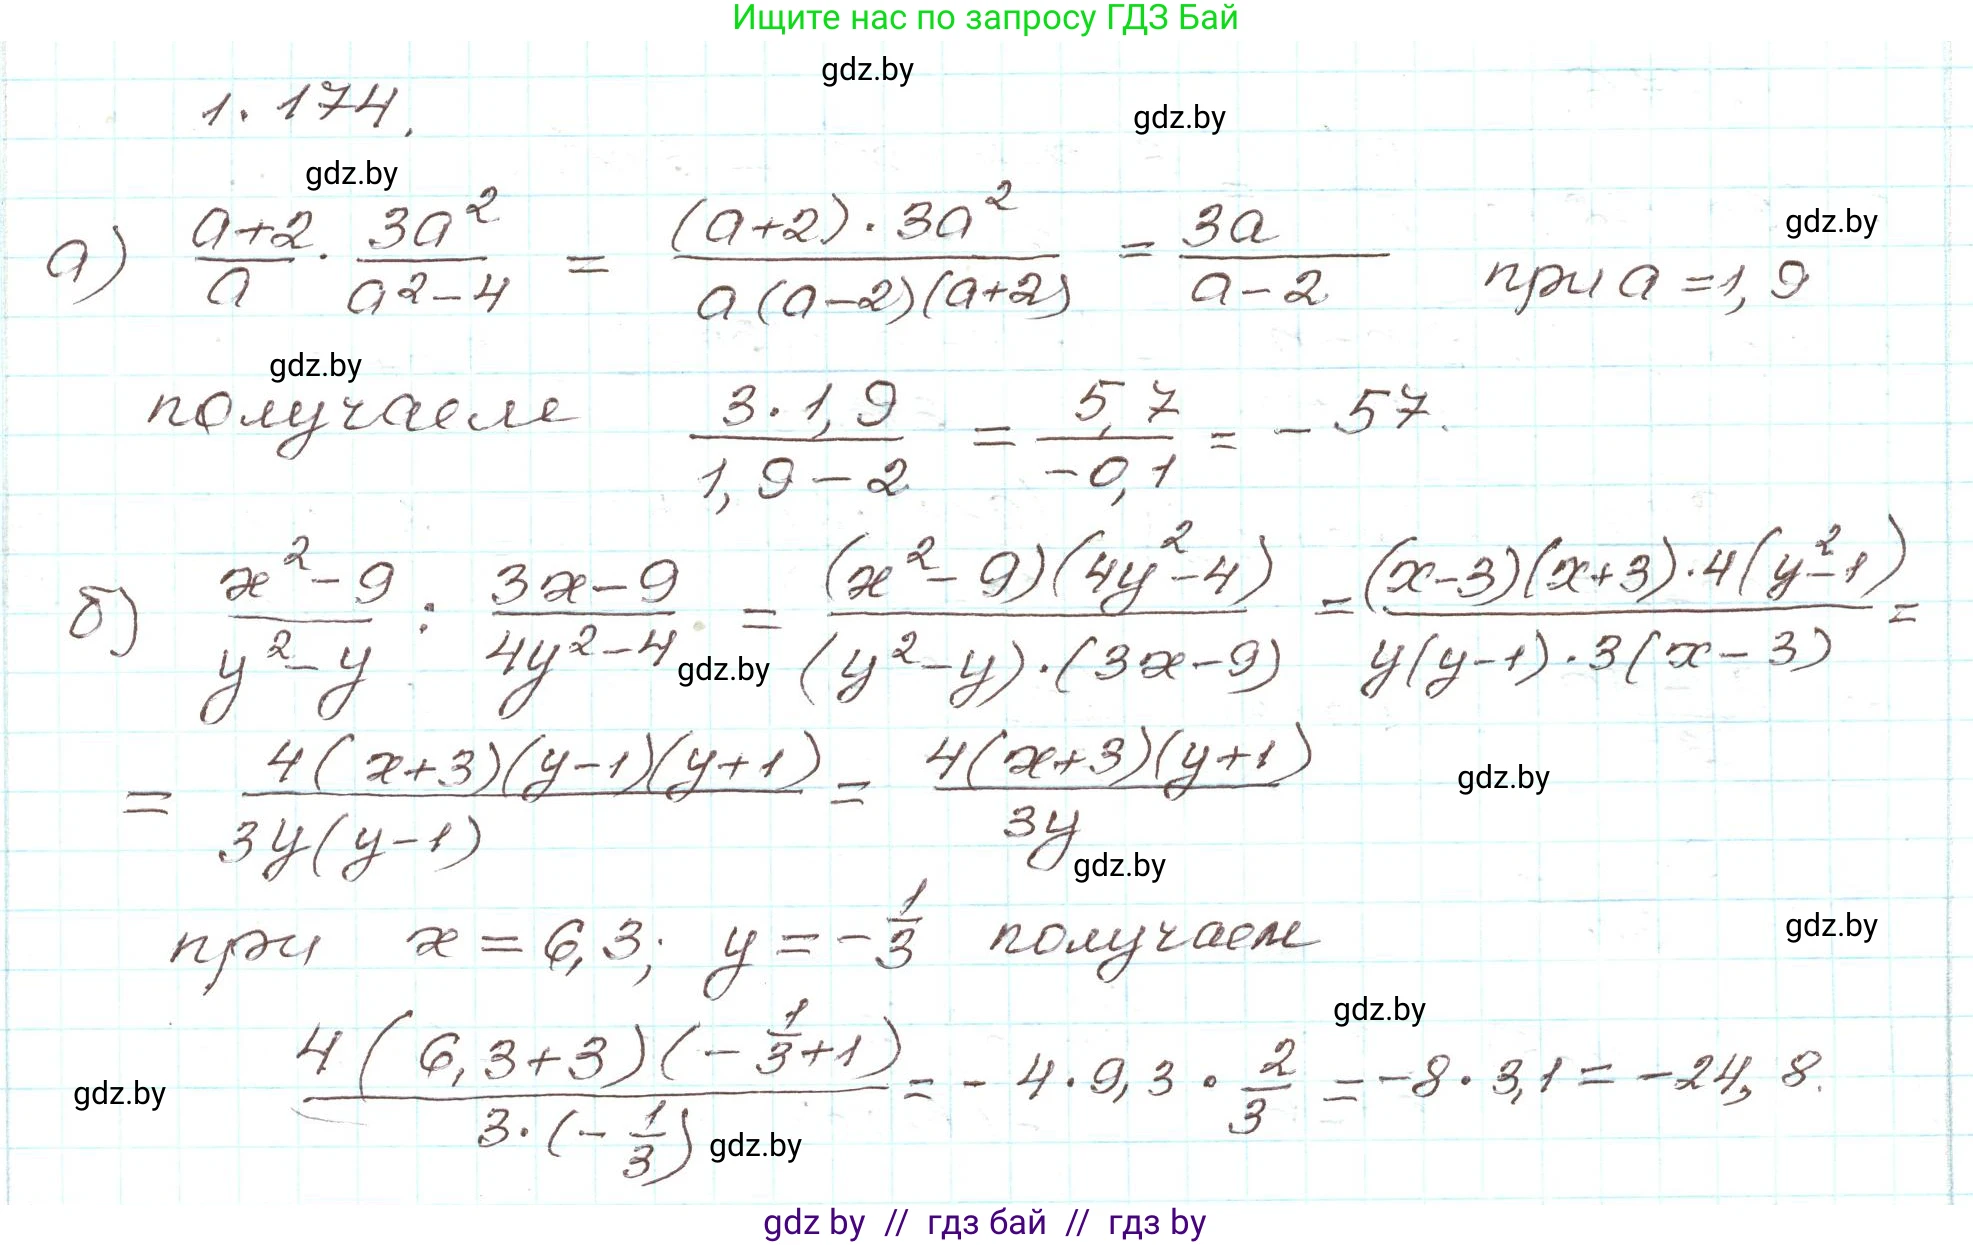 Ищите нас по запросу ГДЗ Бай
gdz.by
1.174.
gdz.by
gdz.by
а) (a+2)/a · 3a²/(a²-4) = ((a+2)·3a²)/(a(a-2)(a+2)) = 3a/(a-2) при a=1,9
gdz.by
gdz.by
получаем (3·1,9)/(1,9-2) = 5,7/(-0,1) = -57.
б) (x²-9)/(y²-y) : (3x-9)/(4y²-4) = ((x²-9)(4y²-4))/((y²-y)·(3x-9)) = ((x-3)(x+3)·4(y²-1))/(y(y-1)·3(x-3)) =
gdz.by
= (4(x+3)(y-1)(y+1))/(3y(y-1)) = (4(x+3)(y+1))/(3y)
gdz.by
gdz.by
при x=6,3; y=-1/3 получаем
gdz.by
gdz.by
(4(6,3+3)(-1/3+1))/(3·(-1/3)) = -4·9,3·2/3 = -8·3,1 = -24,8.
gdz.by
gdz.by
gdz by // гдз бай // гдз by